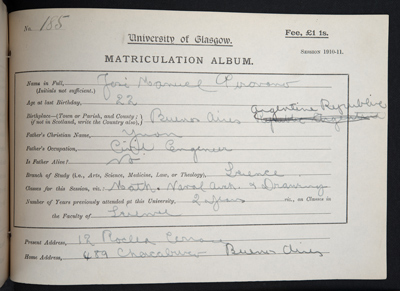 No. 155
University of Glasgow.
Fee, £1 1s.
MATRICULATION ALBUM.
Session 1910-11.
Name in Full, José Manuel
(Initials not sufficient.)
Age at last Birthday, 22
Birthplace—(Town or Parish, and County; if not in Scotland, write the Country also), Buenos Aires Argentine Republic
Father's Christian Name,
Father's Occupation, Civil Engineer
Is Father Alive? No
Branch of Study (i.e., Arts, Science, Medicine, Law, or Theology), Science.
Classes for this Session, viz.: Math. Naval Arch. & Drawing
Number of Years previously attended at this University, 2 years viz., as Classes in
the Faculty of Science
Present Address, 12 Terrace
Home Address, 489 Chacabuco Buenos Aires